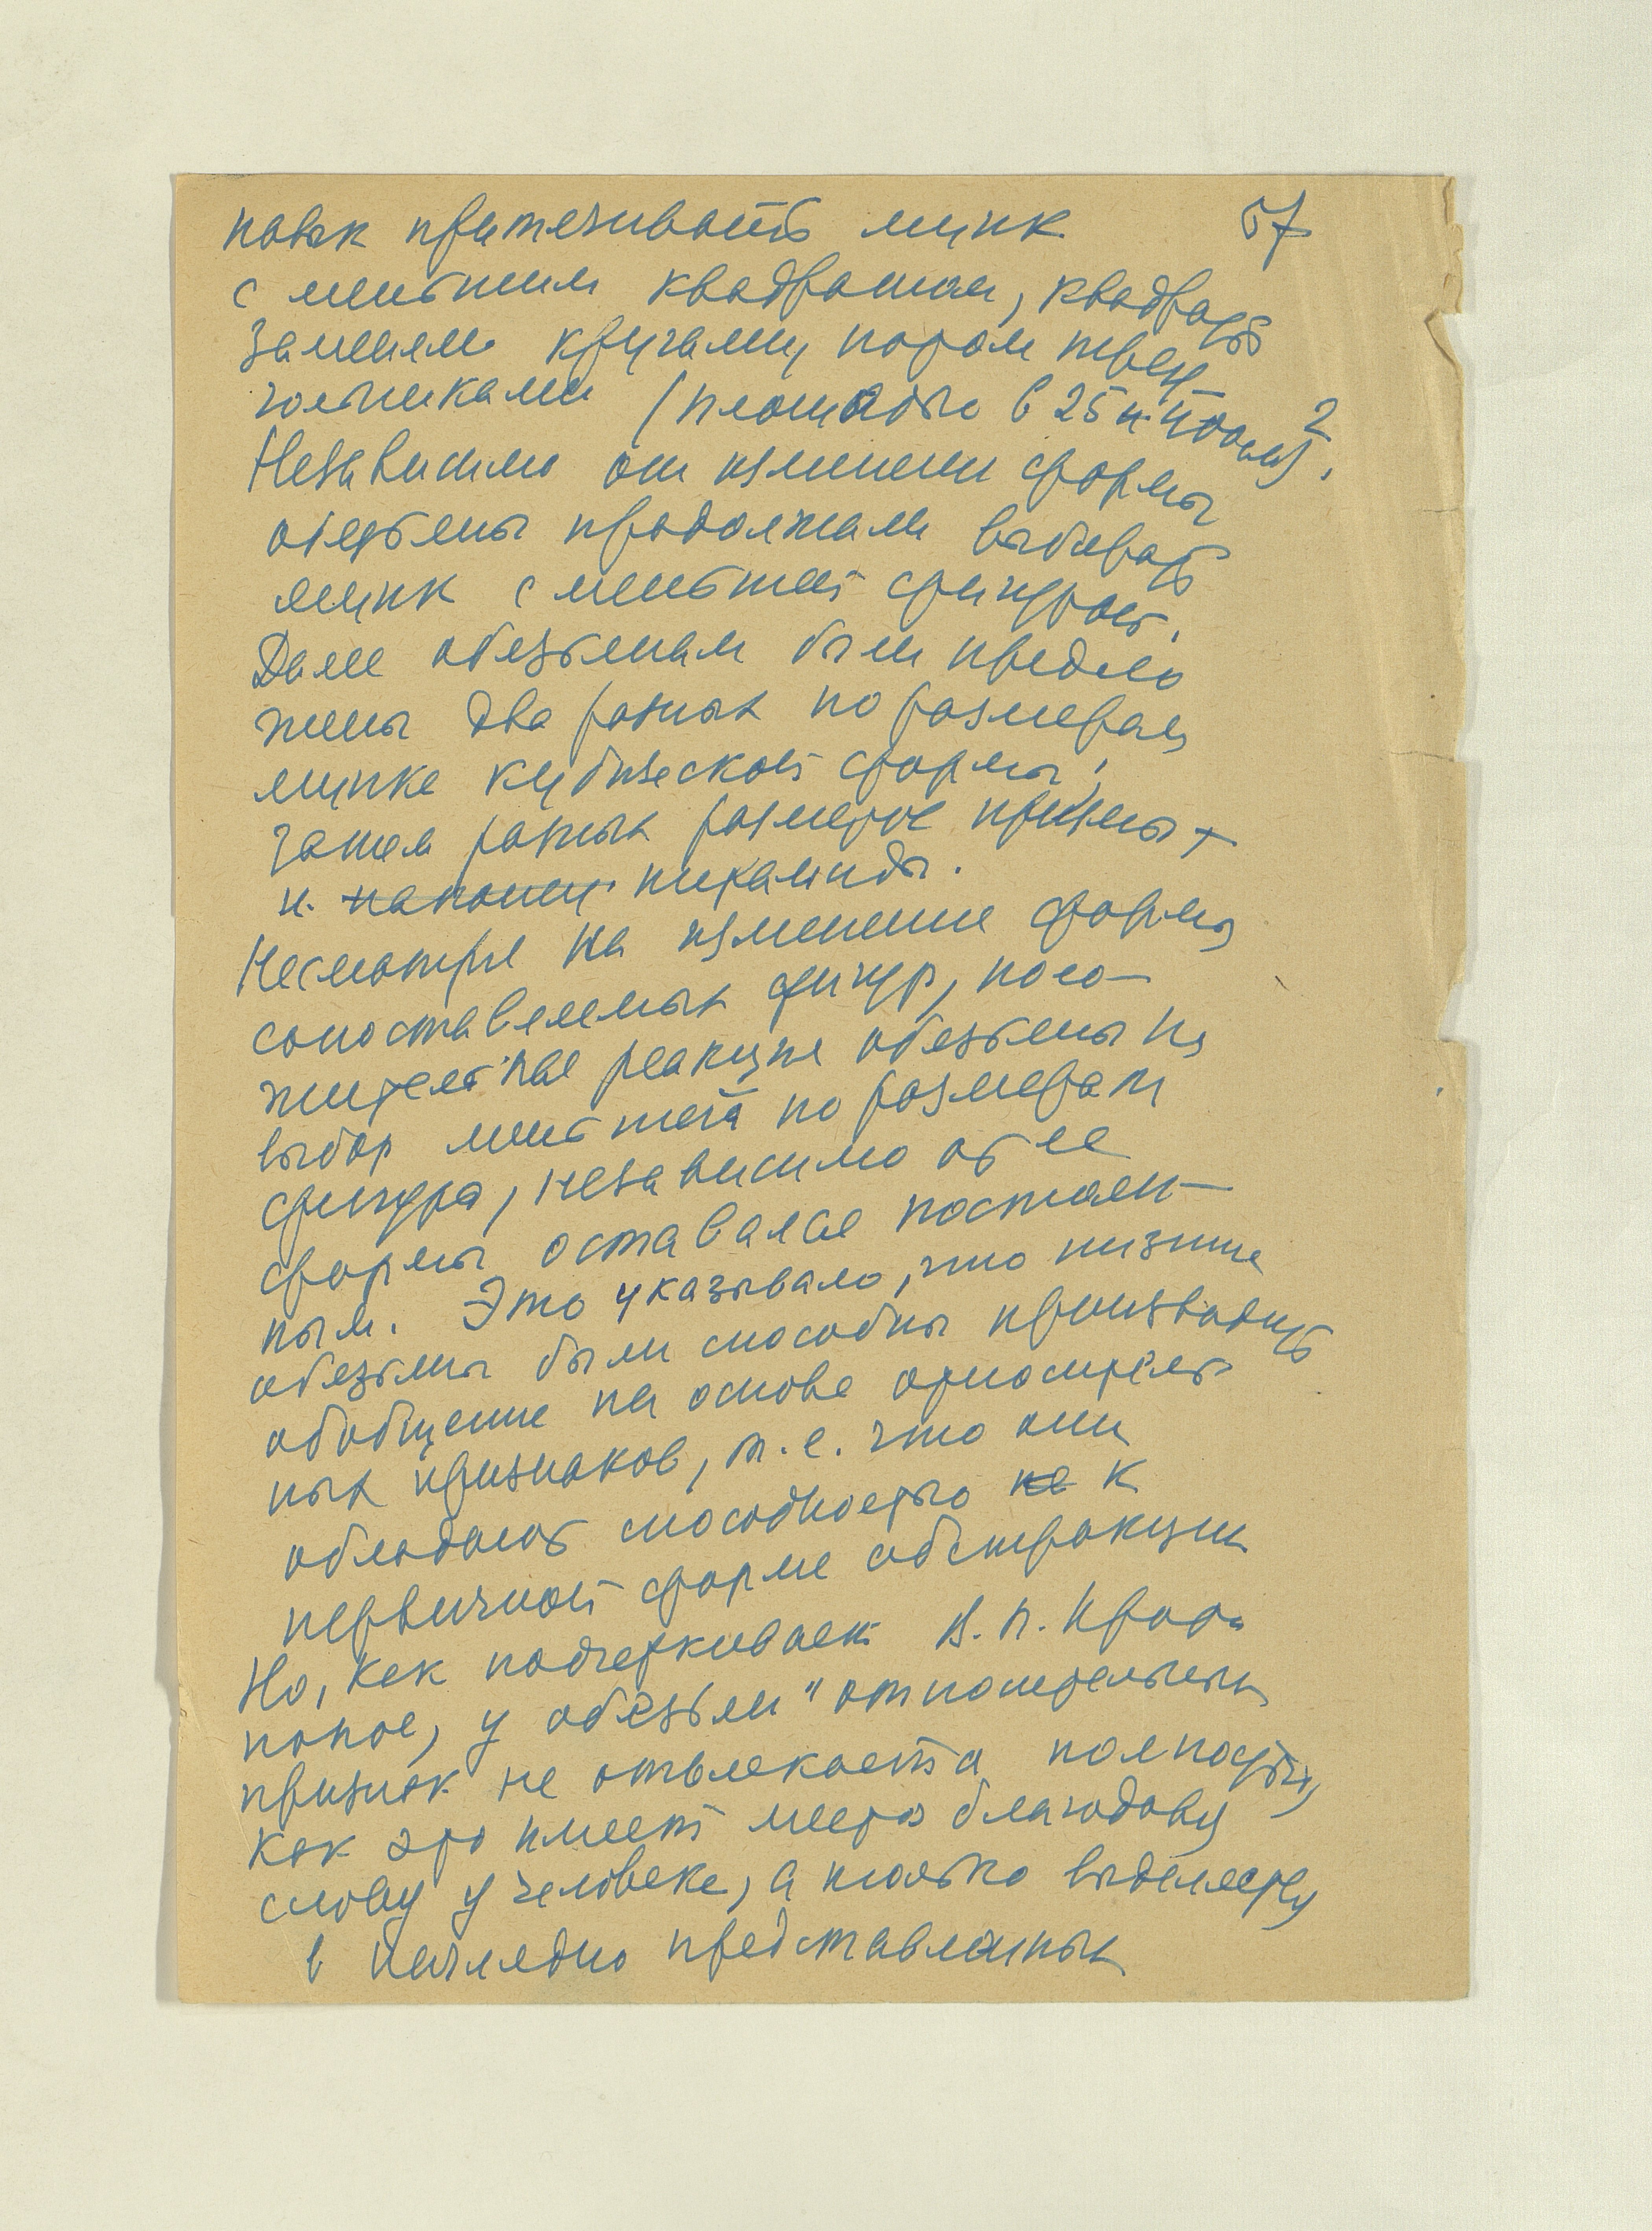 57
навык притягивать ящик
с меньшим квадратом, квадраты
заменяли кругами, потом треу-
гольниками (площадью в 25 и 100 см)2.
Независимо от изменения формы
обезьяны продолжали выбирать
ящик с меньшей фигурой.
Далее обезьянам были предло
жены два разных по размерам
ящика кубической формы,
затем разных размеров призмы +
и наконец пирамиды.
Несмотря на изменение формы
сопоставляемых фигур, поло-
жительная реакция обезьяны на
выбор меньшей по размерам
фигуры, независимо от ее
формы оставался постоян-
ным. Это указывало, что низшие
обезьяны были способны производить
обобщение на основе относитель
ных признаков, т.е. что они
обладают способностью не к
первичной форме абстракции
Но, как подчеркивает В.П. Прото
попов, у обезьян "относительный
признак не отвлекается полностью,
как это имеет место благодаря
слову у человека, а только выделяется
в наглядно представленных